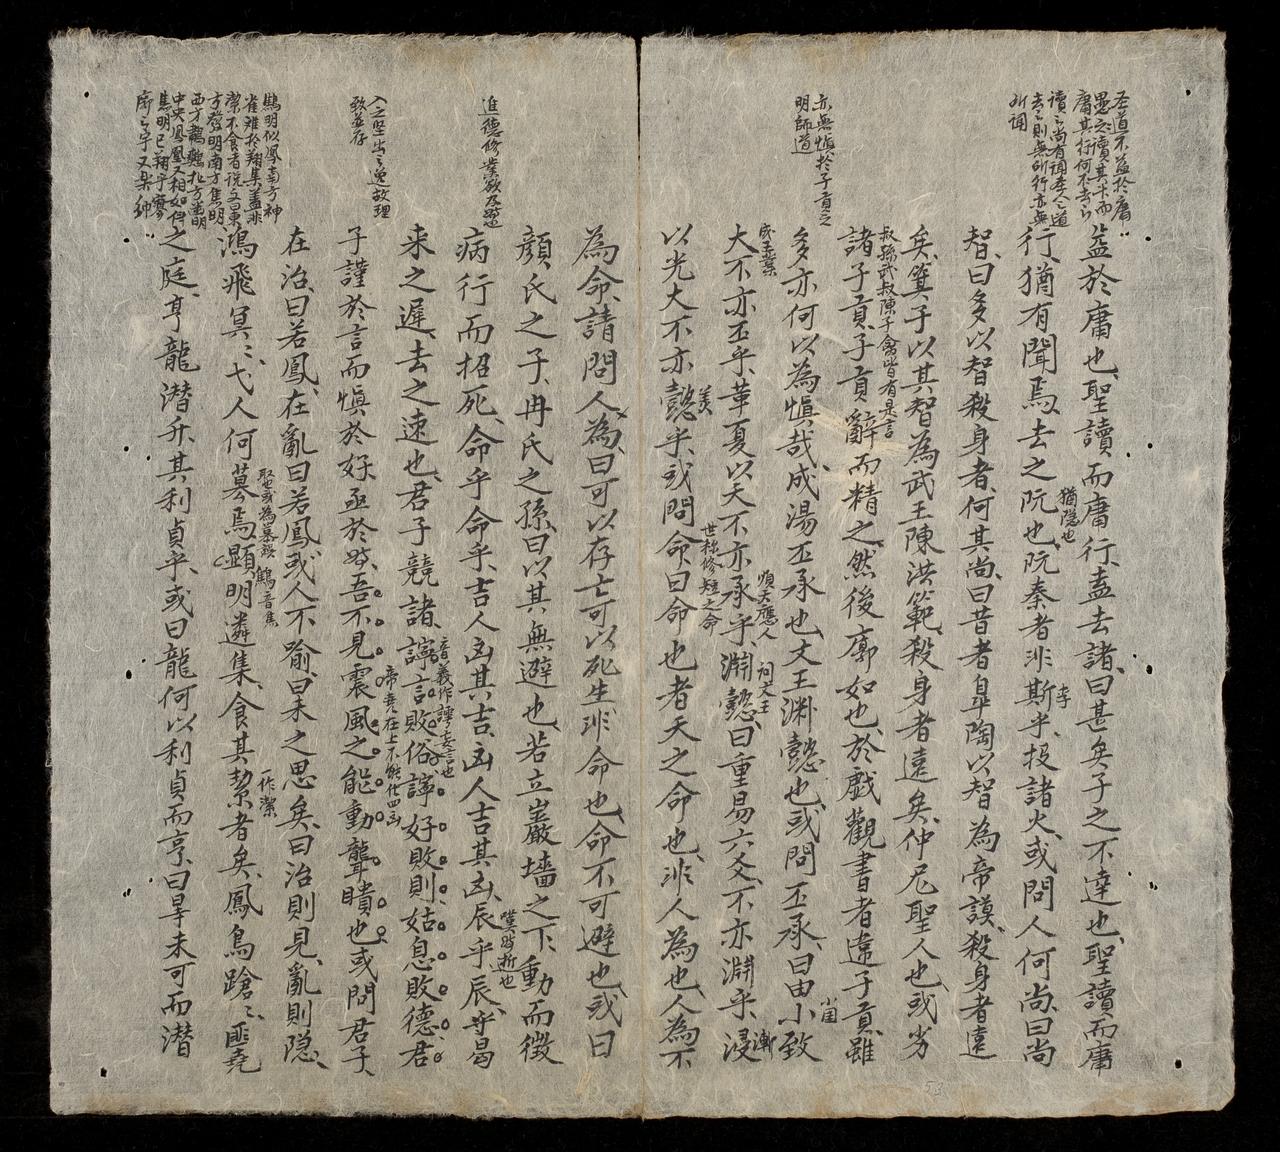 圣道不益於庸
愚之讀其書而
庸其行何不去之
去之則無所行亦無
所聞
益於庸也聖讀而庸行盍去諸曰甚矣子之不達也聖讀而庸
行猶有聞焉去之阮也阮秦者非斯乎投諸火或問人何尚曰尚
猶隠也
李
智曰多以智殺身者何其尚曰昔者皐陶以智為帝謨殺身者遠
矣箕子以其智為武王陳洪範殺身者遠矣仲尼聖人也或劣
叔孫武叔陳子禽皆有是言
諸子貢子貢辭而精之然後廓如也於戲觀書者違子貢雖
亦無慎於子貢之
明師道
多亦何以為慎哉成湯丕承也文王渊懿也或問丕承曰由小致
小国
成王業
順天應人
祠文王
大不亦丕乎革夏以天不亦承乎淵懿曰重易六爻不亦淵乎浸
漸
美
世極修短之命
以光大不亦懿乎或問命曰命也者天之命也非人為也人為不
為命請問人為曰可以存亡可以死生非命也命不可避也或曰
進德修業欲及時
顔氏之子冉氏之孫曰以其無避也若立巖墻之下動而徴
病行而招死命乎命乎吉人凶其吉凶人吉其凶辰乎辰乎曷
嘆時逝也
来之遲去之速也君子競諸諄言敗俗諄好敗則姑息敗德君
音義作謣妄言也
入之堅出之逸故理
致並存
帝堯在上不能化四凶
子謹於言而慎於好亟於時吾不見震風之能動聾瞶也或問君子
在治曰若鳳在亂曰若鳳或人不喻曰未之思矣曰治則見亂則隠
鴻飛冥〻弋人何慕焉顯明遴集食其絜者矣鳳鳥蹌〻匪堯
取也或為慕誤
鷦音焦
一作潔
鷦明似鳳南方神
雀難於翔集盖非
潔不食者說文曰東
方發明南方焦明
西方鷫鷞北方幽明
中央鳳凰又相如傳
焦明已翔乎寥
廓之宇又樂緯
之庭亨龍潜升其利貞乎或曰龍何以利貞而亨曰旹未可而潜